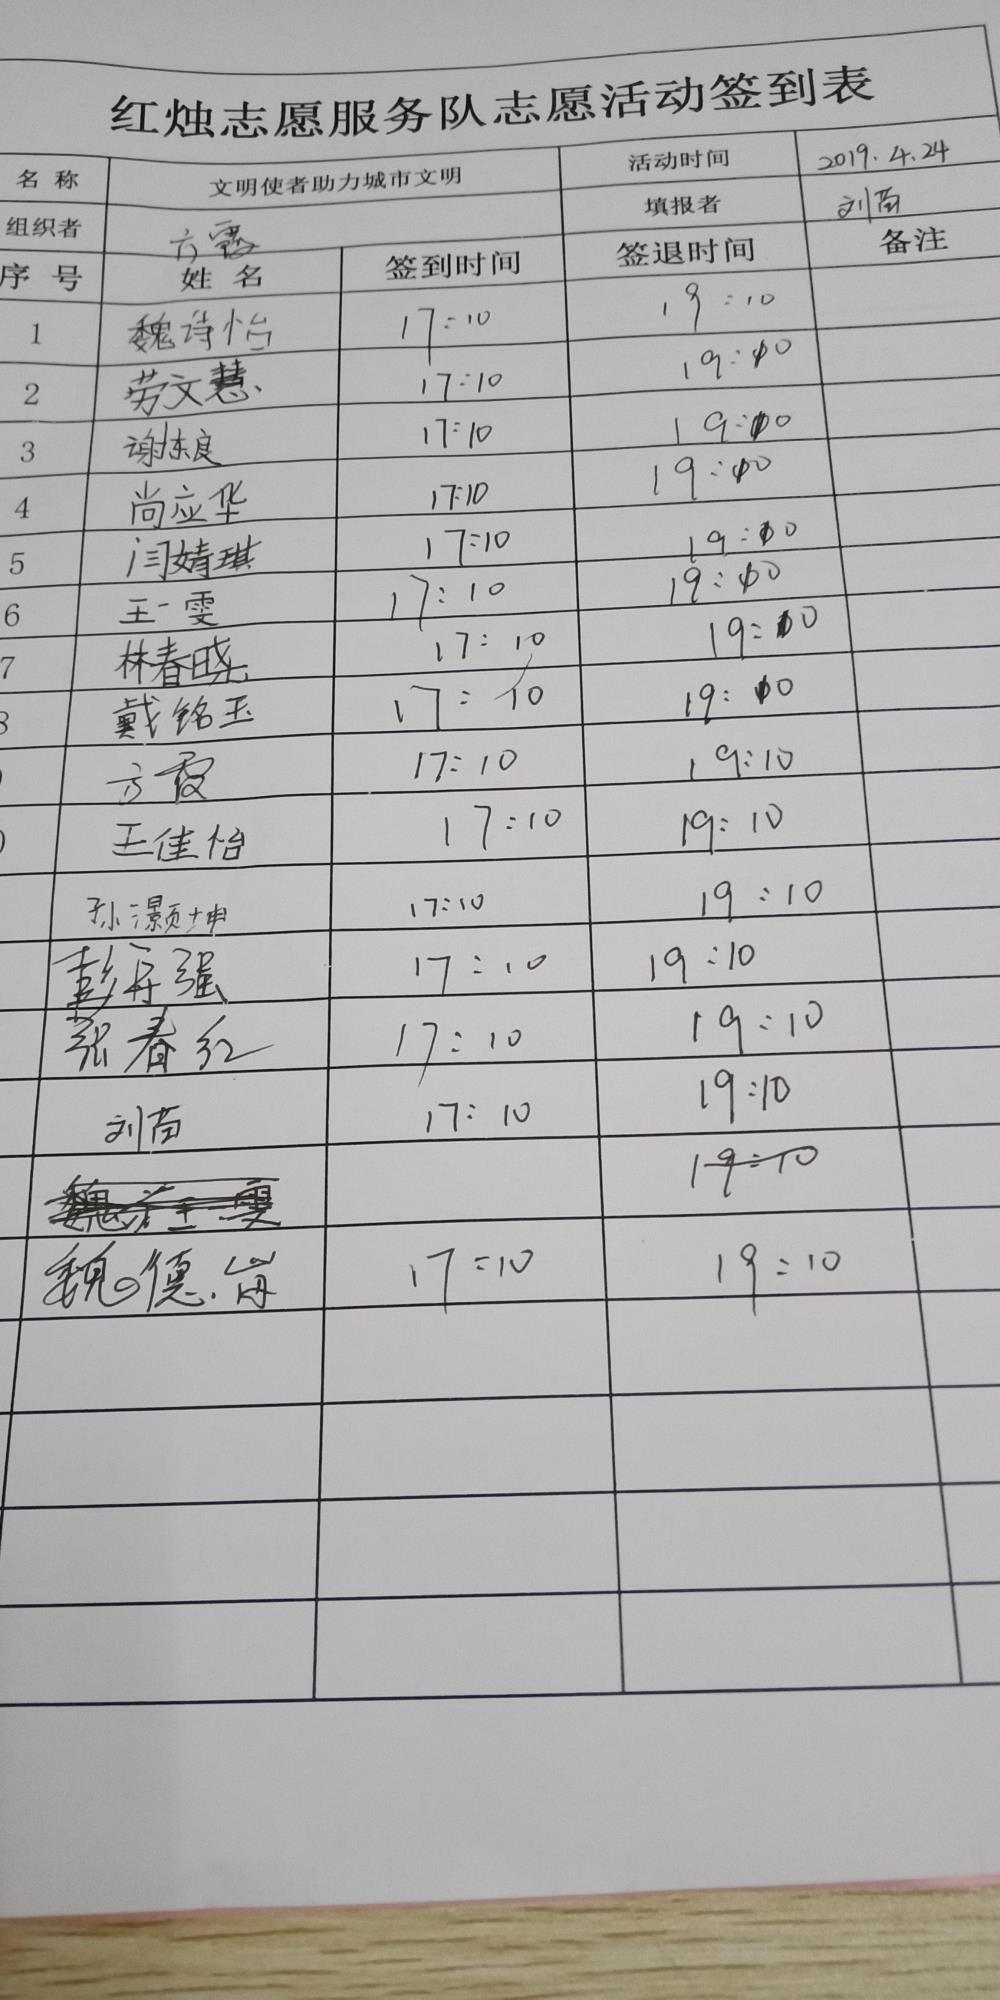 红烛志愿服务队志愿活动签到表
名 称 文明使者助力城市文明 活动时间 2019.4.24
组织者 方霞 填报者 刘苗
序 号 姓 名 签到时间 签退时间 备注
1 魏诗怡 17:10 19:10
2 劳文慧 17:10 19:10
3 谢东良 17:10 19:10
4 尚应华 17:10 19:10
5 闫婧琪 17:10 19:10
6 王一雯 17:10 19:10
7 林春晓 17:10 19:10
8 戴铭玉 17:10 19:10
方霞 17:10 19:10
王佳怡 17:10 19:10
孙灏坤 17:10 19:10
彭 强 17:10 19:10
张春红 17:10 19:10
刘苗 17:10 19:10
19:10
魏德 17:10 19:10